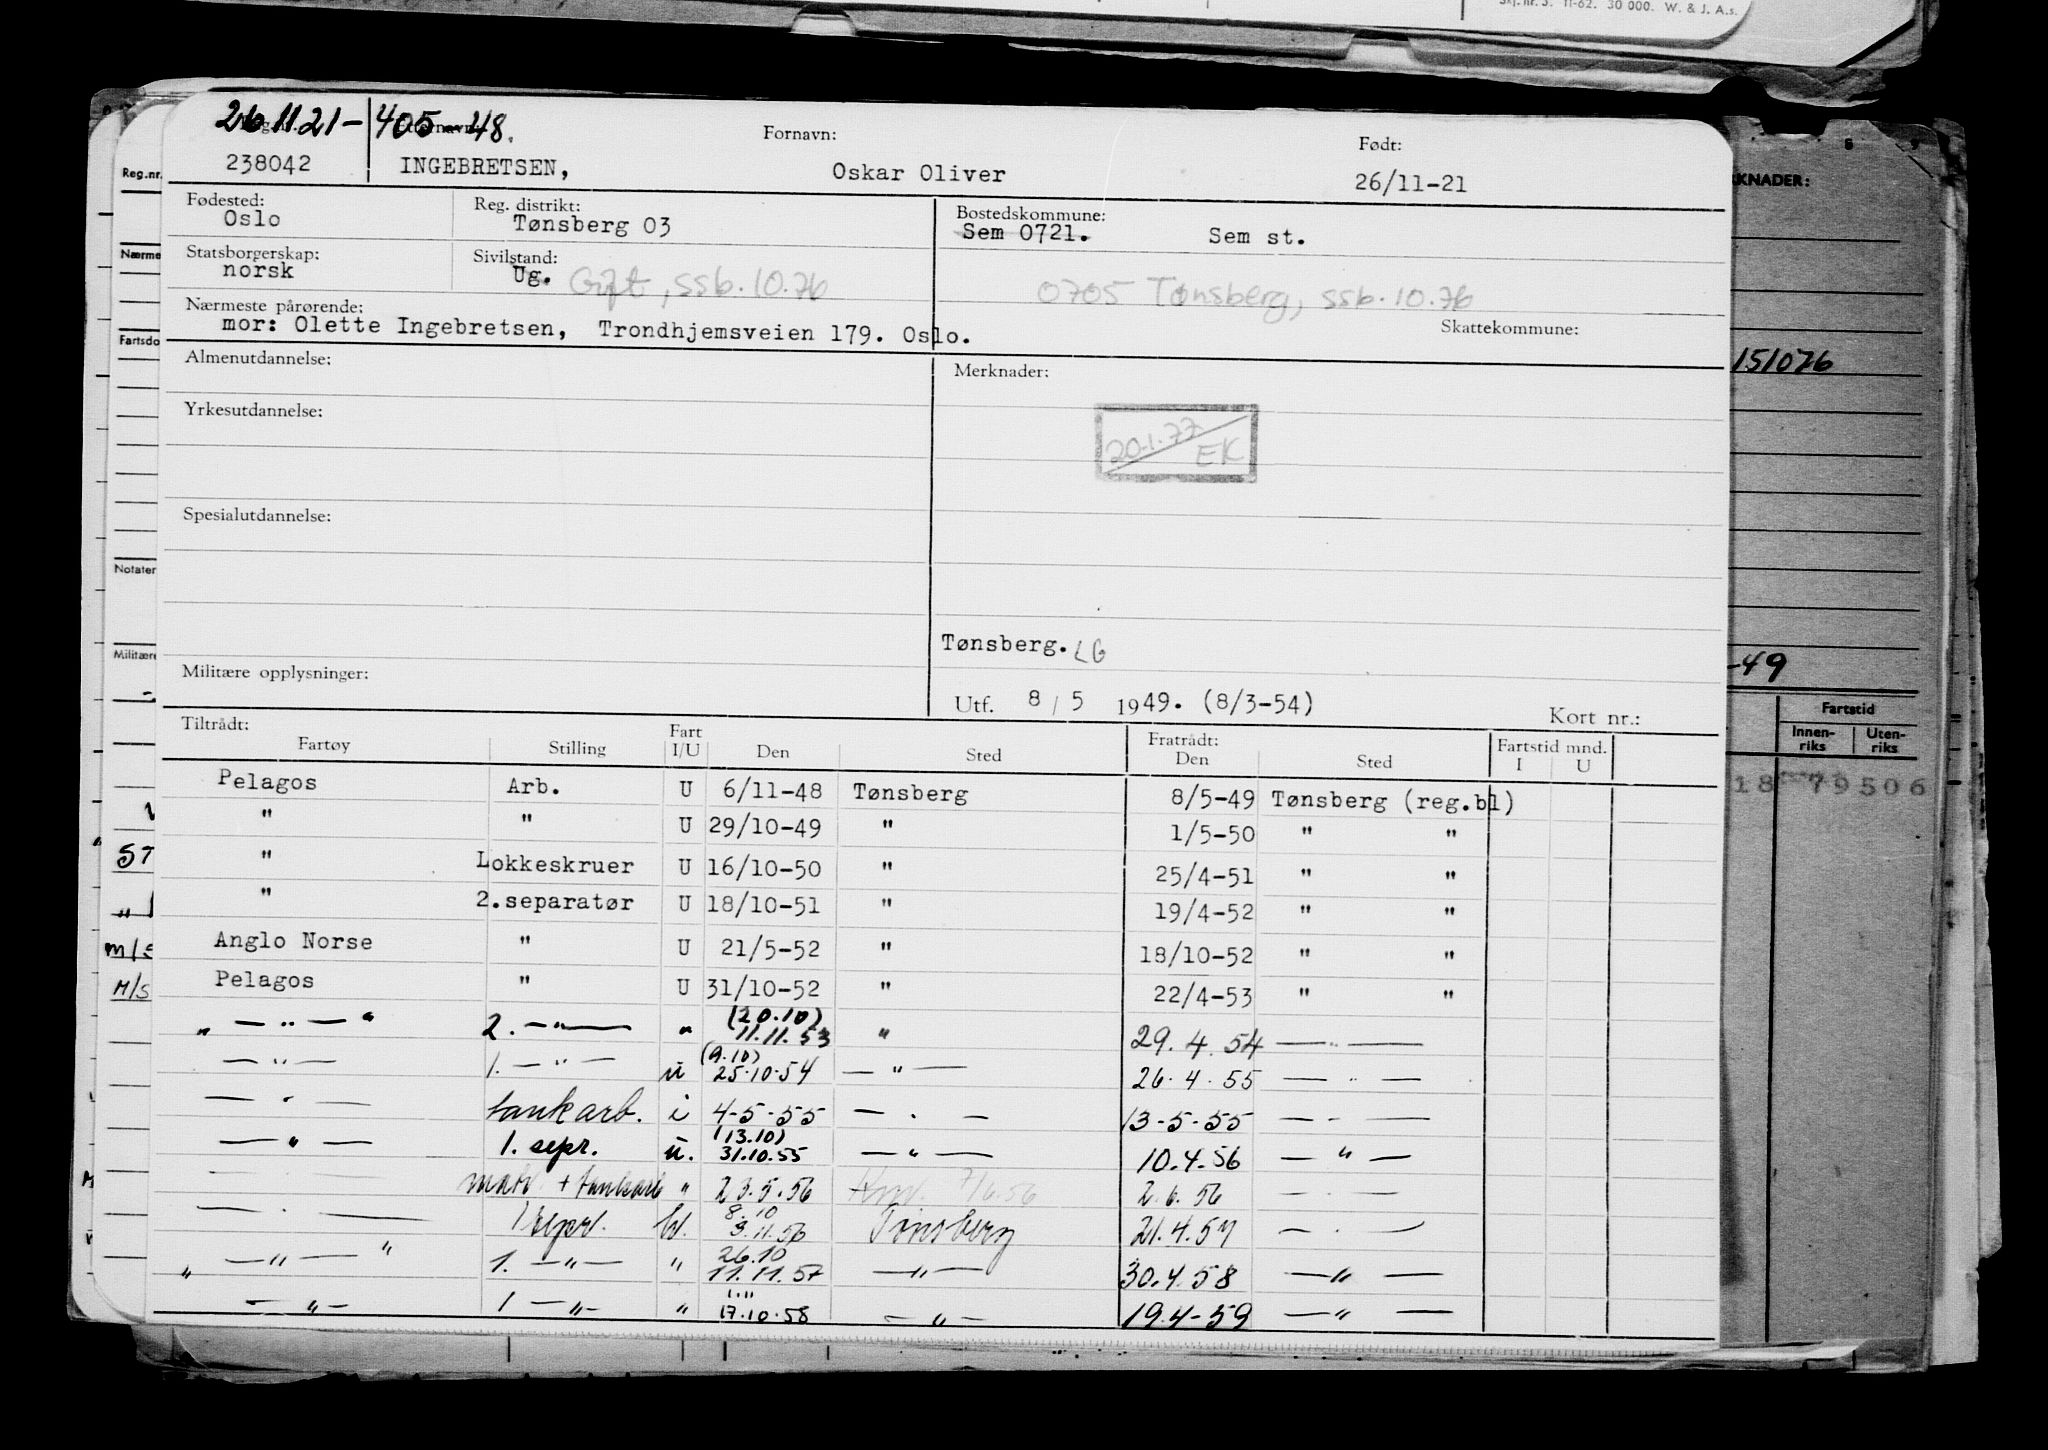 Skj. nr. 3. 11-62. 30 000. W. & J. A.s.
26.11.21-405 48.
Fornavn:
Født:
238042 INGEBRETSEN, Oskar Oliver 26/11-21
Fødested: Reg. distrikt: Bostedskommune:
Oslo Tønsberg 03 Sem 0721. Sem st.
Statsborgerskap: Sivilstand:
norsk Ug. Gift, ssb. 10.76 0705 Tønsberg, ssb. 10.76
Nærmeste pårørende: Skattekommune:
mor: Olette Ingebretsen, Trondhjemsveien 179. Oslo.
Almenutdannelse: Merknader:
Yrkesutdannelse:
20.1.77 EK
Spesialutdannelse:
Tønsberg. LG
Militære opplysninger:
Utf. 8/5 1949. (8/3-54) Kort nr.:
Tiltrådt: Fart Fratrådt: Fartstid mnd.
Fartøy Stilling I/U Den Sted Den Sted I U
Pelagos Arb. U 6/11-48 Tønsberg 8/5-49 Tønsberg (reg.bl)
" " U 29/10-49 " 1/5-50 " "
" Lokkeskruer U 16/10-50 " 25/4-51 " "
" 2.separatør U 18/10-51 " 19/4-52 " "
Anglo Norse " U 21/5-52 " 18/10-52 " "
Pelagos " U 31/10-52 " 22/4-53 " "
" — " — " 2. — " — " (20.10) 11.11.53 " 29.4.54 — " —
— " — 1. — " — u (9.10) 25.10.54 — " — 26.4.55 — " —
— " — tankarb. i 4-5-55 — " — 13-5-55 — " —
— " — 1. sepr. u. (13.10) 31.10.55 — " — 10.4.56 — " —
matr + tankarb " 23.5.56 7/6.56 2.6.56 — " —
— " — 8.10 3.11.56 Tønsberg 21.4.57 — " —
" — " — " 1. — " — " 26.10 11.11.57 — " — 30.4.58 — " —
— " — 1 — " — " 17.10.58 — " — 19.4-59 — " —
Reg.nr.
Nærme
Fartsdo
Notater
Militære
ST
M/S
M/S
RKNADER:
151076
-49
Fartstid
Innen-riks Uten-riks
18 79506